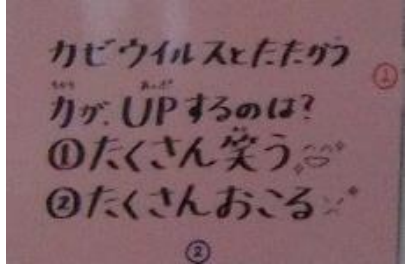 カビウイルスとたたかう
力が、UPするのは？
①たくさん笑う
②たくさんおこる
①
②